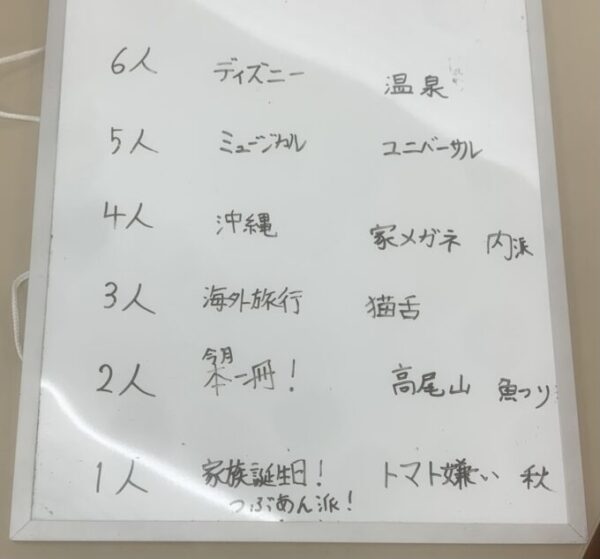 6人 ディズニー 温泉
5人 ミュージカル ユニバーサル
4人 沖縄 家メガネ 内派
3人 海外旅行 猫舌
今月
2人 本一冊! 高尾山 魚つり
1人 家族誕生日! トマト嫌い 秋
つぶあん派!